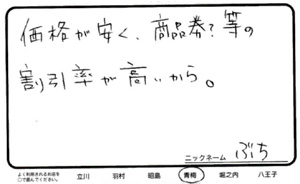 価格が安く、商品券?等の
割引率が高いから。
ニックネーム ぶち
よく利用されるお店を
○で囲んでください。 立川 羽村 昭島 青梅 堀之内 八王子